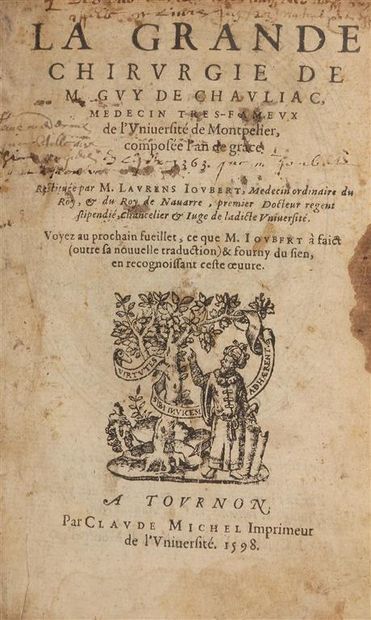 LA GRANDE
CHIRVRGIE DE
M. GVY DE CHAVLIAC,
MEDECIN TRES-FAMEVX
de l'Vniuersité de Montpelier,
composée l'an de grace
1363.
Restituée par M. LAVRENS IOVBERT, Medecin ordinaire du
Roy, & du Roy de Nauarre, premier Docteur regent
stipendié, Chancelier & Iuge de ladicte Vniuersité.
Voyez au prochain fueillet, ce que M. IOVBERT à faict
(outre sa nouuelle traduction) & fourny du sien,
en recognoissant ceste œuure.
VIRTVTES
SIBI INVICEM
ADHÆRENT
A TOVRNON,
Par CLAVDE MICHEL Imprimeur
de l'Vniuersité. 1598.